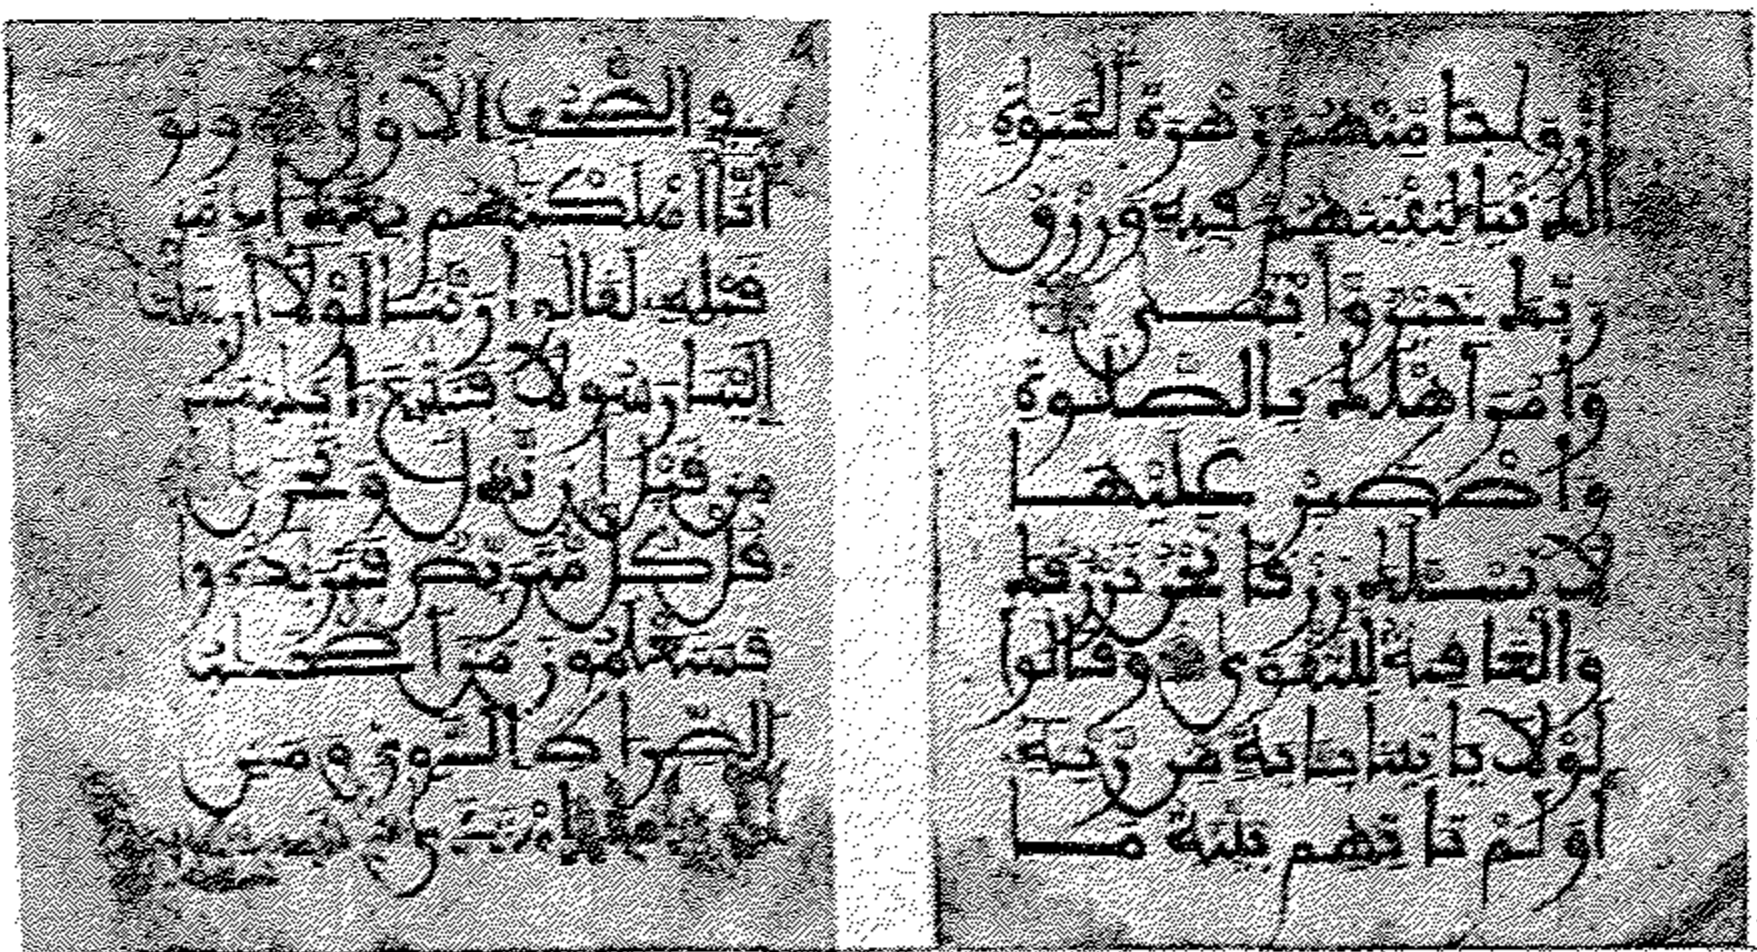 أزواجا منهم زهرة الحيوة
الدنيا لنفتنهم فيه ورزق
ربك خير وأبقى
وأمر أهلك بالصلوة
واصطبر عليها
لا نسئلك رزقا نحن نرزقك
والعاقبة للتقوى وقالوا
لولا ياتينا بئاية من ربه
أولم تاتهم بينة ما
في الصحف الأولى ولو
أنا أهلكنهم بعذاب من
قبله لقالوا ربنا لولا أرسلت
إلينا رسولا فنتبع ءايتك
من قبل أن نذل ونخزى
قل كل متربص فتربصوا
فستعلمون من أصحب
الصرط السوي ومن
اهتدى